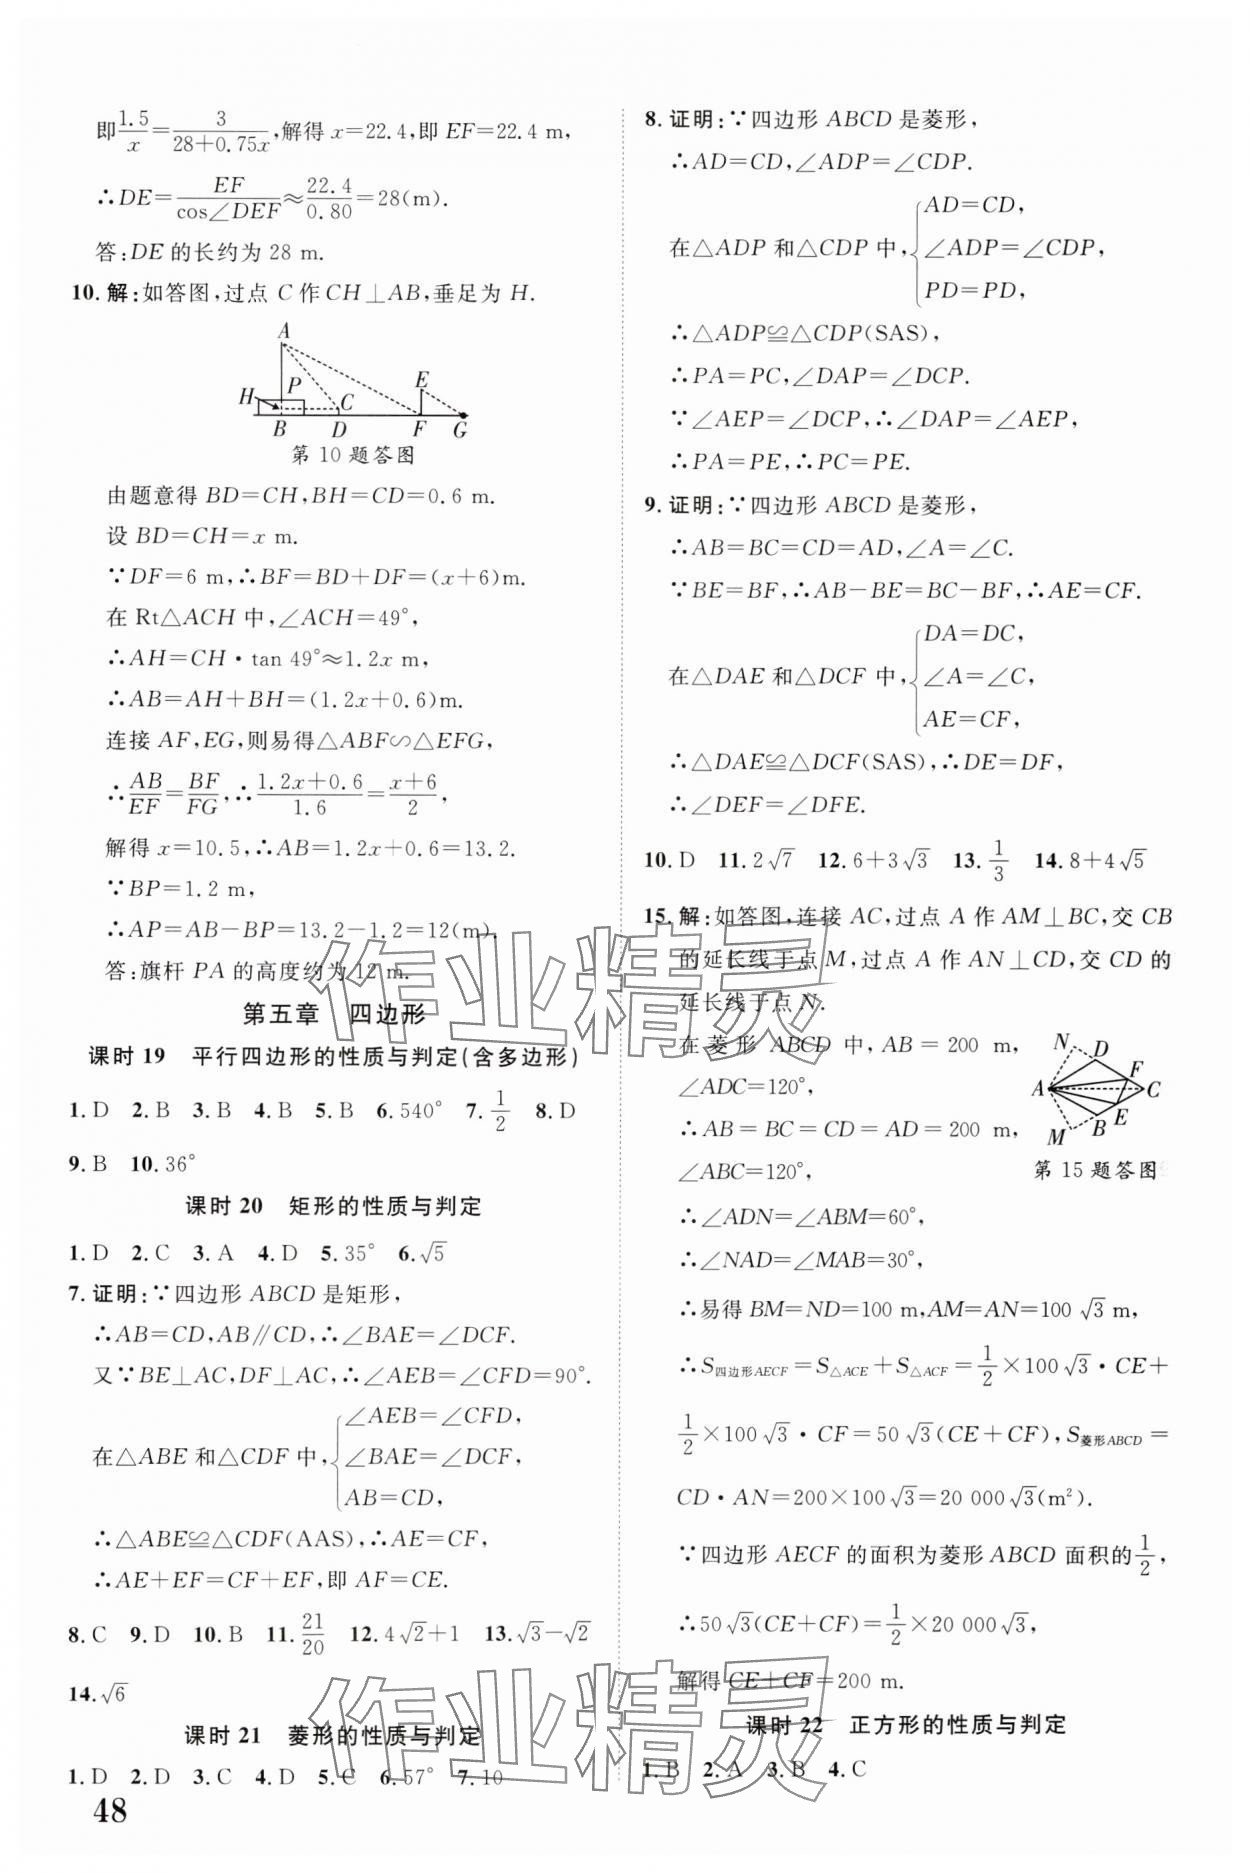 即1.5/x=3/(28+0.75x),解得 x=22.4,即 EF=22.4 m,
∴DE=EF/cos∠DEF≈22.4/0.80=28(m).
答:DE 的长约为 28 m.
10. 解:如答图,过点 C 作 CH⊥AB,垂足为 H.
A
P
E
H
C
B D F G
第 10 题答图
由题意得 BD=CH,BH=CD=0.6 m.
设 BD=CH=x m.
∵DF=6 m,∴BF=BD+DF=(x+6)m.
在 Rt△ACH 中,∠ACH=49°,
∴AH=CH·tan 49°≈1.2x m,
∴AB=AH+BH=(1.2x+0.6)m.
连接 AF,EG,则易得△ABF∽△EFG,
∴AB/EF=BF/FG,∴(1.2x+0.6)/1.6=(x+6)/2,
解得 x=10.5,∴AB=1.2x+0.6=13.2.
∵BP=1.2 m,
∴AP=AB−BP=13.2−1.2=12(m).
答:旗杆 PA 的高度约为 12 m.
第五章 四边形
课时 19 平行四边形的性质与判定(含多边形)
1. D 2. B 3. B 4. B 5. B 6. 540° 7. 1/2 8. D
9. B 10. 36°
课时 20 矩形的性质与判定
1. D 2. C 3. A 4. D 5. 35° 6. √5
7. 证明:∵四边形 ABCD 是矩形,
∴AB=CD,AB∥CD,∴∠BAE=∠DCF.
又∵BE⊥AC,DF⊥AC,∴∠AEB=∠CFD=90°.
在△ABE 和△CDF 中,{∠AEB=∠CFD,
∠BAE=∠DCF,
AB=CD,
∴△ABE≌△CDF(AAS),∴AE=CF,
∴AE+EF=CF+EF,即 AF=CE.
8. C 9. D 10. B 11. 21/20 12. 4√2+1 13. √3−√2
14. √6
课时 21 菱形的性质与判定
1. D 2. D 3. C 4. D 5. C 6. 57° 7. 10
48
8. 证明:∵四边形 ABCD 是菱形,
∴AD=CD,∠ADP=∠CDP.
在△ADP 和△CDP 中,{AD=CD,
∠ADP=∠CDP,
PD=PD,
∴△ADP≌△CDP(SAS),
∴PA=PC,∠DAP=∠DCP.
∵∠AEP=∠DCP,∴∠DAP=∠AEP,
∴PA=PE,∴PC=PE.
9. 证明:∵四边形 ABCD 是菱形,
∴AB=BC=CD=AD,∠A=∠C.
∵BE=BF,∴AB−BE=BC−BF,∴AE=CF.
在△DAE 和△DCF 中,{DA=DC,
∠A=∠C,
AE=CF,
∴△DAE≌△DCF(SAS),∴DE=DF,
∴∠DEF=∠DFE.
10. D 11. 2√7 12. 6+3√3 13. 1/3 14. 8+4√5
15. 解:如答图,连接 AC,过点 A 作 AM⊥BC,交 CB
的延长线于点 M,过点 A 作 AN⊥CD,交 CD 的
延长线于点 N.
在菱形 ABCD 中,AB=200 m,
∠ADC=120°,
∴AB=BC=CD=AD=200 m,
∠ABC=120°,
N D
F
A C
E
M B
第 15 题答图
∴∠ADN=∠ABM=60°,
∴∠NAD=∠MAB=30°,
∴易得 BM=ND=100 m,AM=AN=100√3 m,
∴S四边形AECF=S△ACE+S△ACF=1/2×100√3·CE+
1/2×100√3·CF=50√3(CE+CF),S菱形ABCD=
CD·AN=200×100√3=20 000√3(m²).
∵四边形 AECF 的面积为菱形 ABCD 面积的1/2,
∴50√3(CE+CF)=1/2×20 000√3,
解得 CE+CF=200 m.
课时 22 正方形的性质与判定
1. B 2. A 3. B 4. C
作业精灵
作业精灵